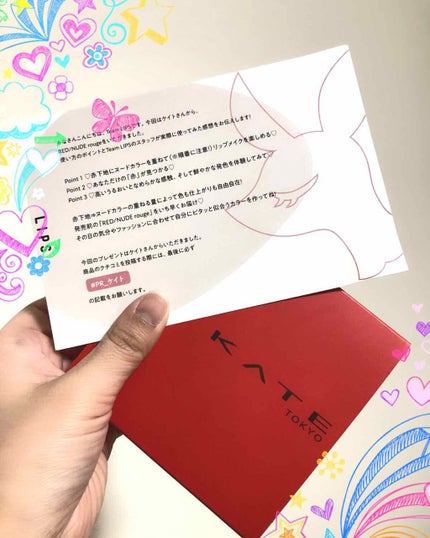 みなさんこんにちは、Team LIPSです。今回はケイトさんから、
RED/NUDE rougeをいただきました。
使い方のポイントとTeam LIPSのスタッフが実際に使ってみた感想をお伝えします!
Point 1 ♡赤下地にヌードカラーを重ねて(※順番に注意!)リップメイクを楽しめる♡
Point 2 ♡あなただけの「赤」が見つかる♡
Point 3 ♡高いうるおいとなめらかな感触、そして鮮やかな発色を体験してみて♡
赤下地⇒ヌードカラーの重ねる量によって色も仕上がりも自由自在!
発売前の「RED/NUDE rouge」をいち早くお届け♡
その日の気分やファッションに合わせて自分にピタッと似合うカラーを作ってね!
今回のプレゼントはケイトさんからいただきました。
商品のクチコミを投稿する際には、最後に必ず
#PR_ケイト
の記載をお願いします。
LIPS
KATE
TOKYO